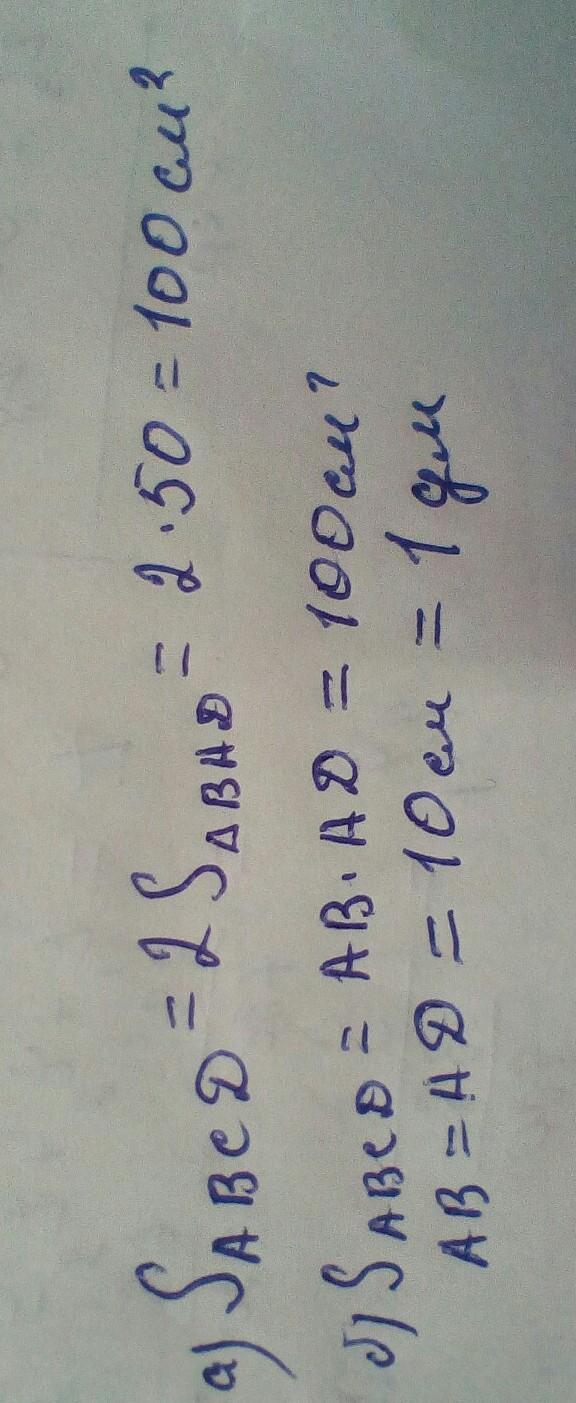 а) S ABCD = 2 S ΔBAD = 2·50 = 100 см²
б) S ABCD = AB·AD = 100 см²
AB = AD = 10 см = 1 дм